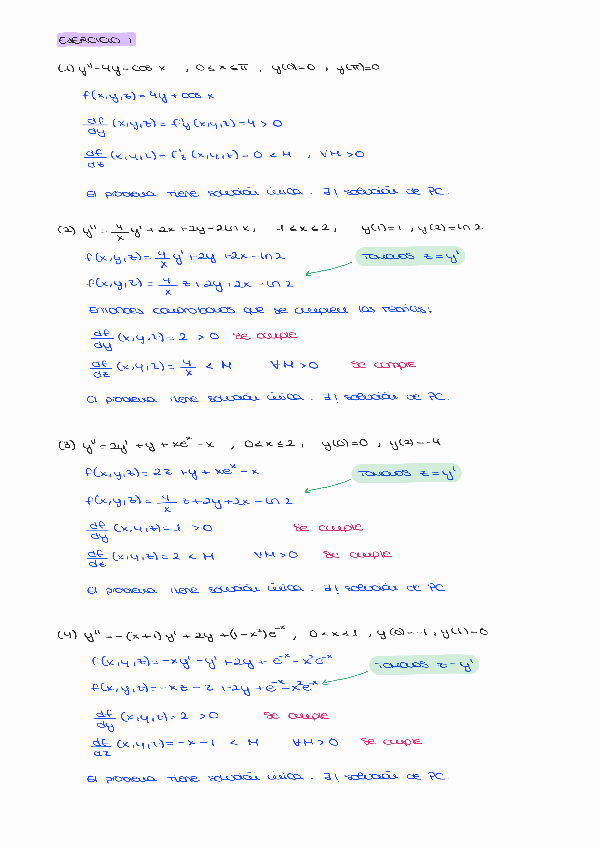 EJERCICIO 1
(1) y'' = 4y + cos x , 0 ≤ x ≤ π , y(0)=0 , y(π)=0
f(x,y,z) = 4y + cos x
df/dy (x,y,z) = f'y(x,y,z) = 4 > 0
df/dz (x,y,z) = f'z (x,y,z) = 0 < M , ∀M > 0
El problema tiene solución única. ∃! solución de PC.
(2) y'' = 4/x y' + 2x + 2y - 2 ln x , 1 ≤ x ≤ 2 , y(1) = 1 , y(2) = ln 2
f(x,y,z) = 4/x y' + 2y + 2x - ln 2 Tomamos z = y'
f(x,y,z) = 4/x z + 2y + 2x - ln 2
Entonces comprobamos que se cumplen las teorías:
df/dy (x,y,z) = 2 > 0 Se cumple
df/dz (x,y,z) = 4/x < M ∀M > 0 Se cumple
El problema tiene solución única. ∃! solución de PC.
(3) y'' = 2y' + y + xe^x - x , 0 < x ≤ 2 , y(0) = 0 , y(2) = -4
f(x,y,z) = 2z + y + xe^x - x Tomamos z = y'
f(x,y,z) = 4/x z + 2y + 2x - ln 2
df/dy (x,y,z) = 1 > 0 Se cumple
df/dz (x,y,z) = 2 < M ∀M > 0 Se cumple
El problema tiene solución única. ∃! solución de PC
(4) y'' = -(x+1) y' + 2y + (1-x²)e^-x , 0 < x < 1 , y(0) = -1 , y(1) = 0
f(x,y,z) = -xy' - y' + 2y + e^-x - x²e^-x Tomamos z = y'
f(x,y,z) = -xz - z + 2y + e^-x - x²e^-x
df/dy (x,y,z) = 2 > 0 Se cumple
df/dz (x,y,z) = -x - 1 < M ∀M > 0 Se cumple
El problema tiene solución única. ∃! solución de PC.